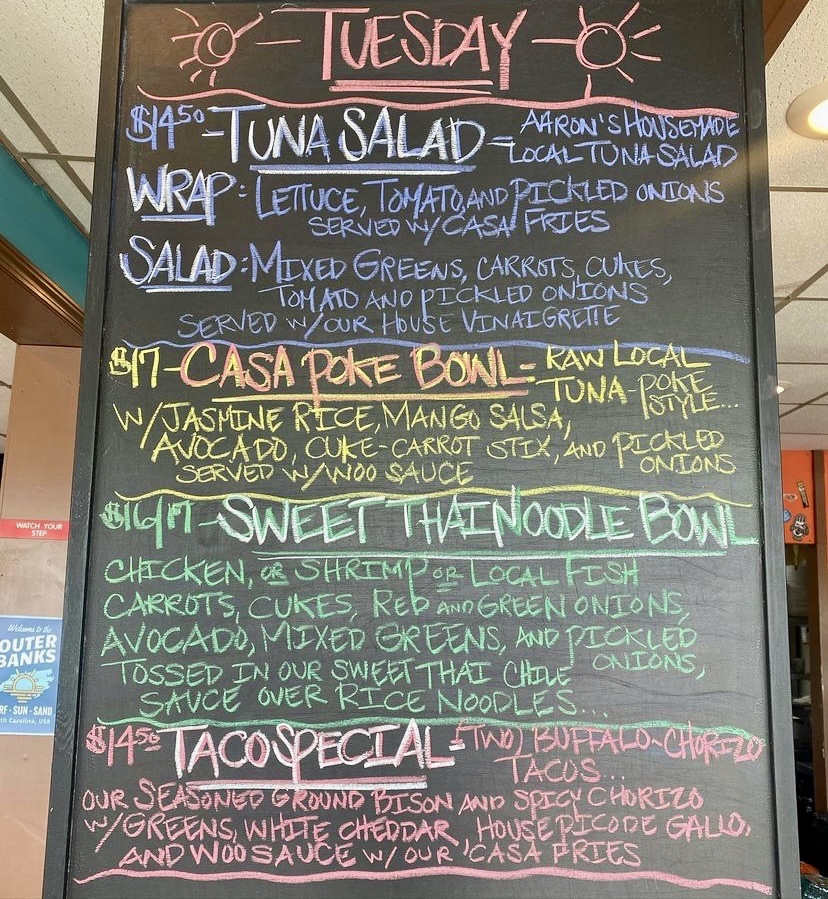 TUESDAY
$14.50 - TUNA SALAD = AARON'S HOUSEMADE
LOCAL TUNA SALAD
WRAP: LETTUCE, TOMATO, AND PICKLED ONIONS
SERVED W/ CASA FRIES
SALAD: MIXED GREENS, CARROTS, CUKES,
TOMATO AND PICKLED ONIONS
SERVED W/ OUR HOUSE VINAIGRETTE
$17 - CASA POKE BOWL = RAW LOCAL
TUNA - POKE
STYLE...
W/ JASMINE RICE, MANGO SALSA,
AVOCADO, CUKE-CARROT STIX, AND PICKLED
ONIONS
SERVED W/ WOO SAUCE
$16/17 - SWEET THAI NOODLE BOWL
CHICKEN, OR SHRIMP OR LOCAL FISH
CARROTS, CUKES, RED AND GREEN ONIONS,
AVOCADO, MIXED GREENS, AND PICKLED
ONIONS,
TOSSED IN OUR SWEET THAI CHILE
SAUCE OVER RICE NOODLES...
$14.50 TACO SPECIAL = (TWO) BUFFALO-CHORIZO
TACOS...
OUR SEASONED GROUND BISON AND SPICY CHORIZO
W/ GREENS, WHITE CHEDDAR, HOUSE PICO DE GALLO,
AND WOO SAUCE W/ OUR CASA FRIES
WATCH YOUR
STEP
Welcome to the
OUTER
BANKS
RF · SUN · SAND
th Carolina, USA